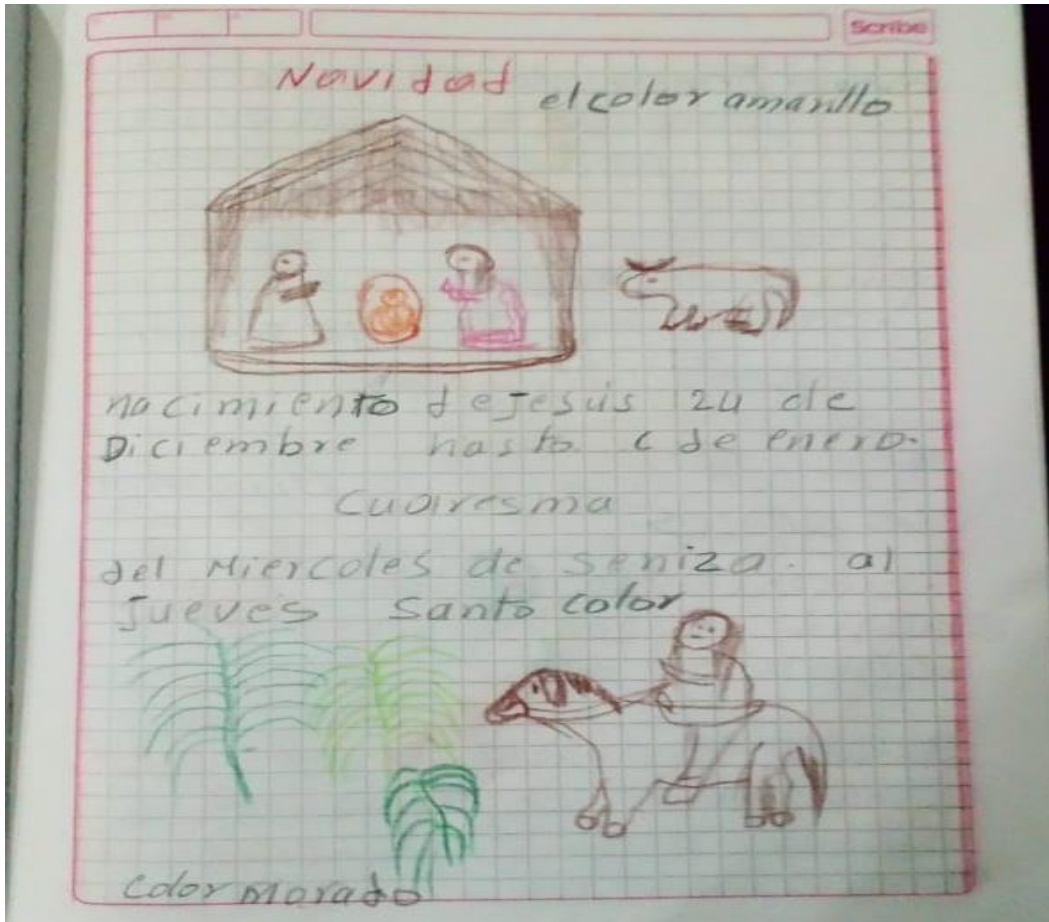 Scribe
Navidad
el color amarillo
nacimiento de Jesús 24 de
Diciembre hasta 6 de enero.
Cuaresma
del Miercoles de seniza. al
Jueves Santo color
color morado